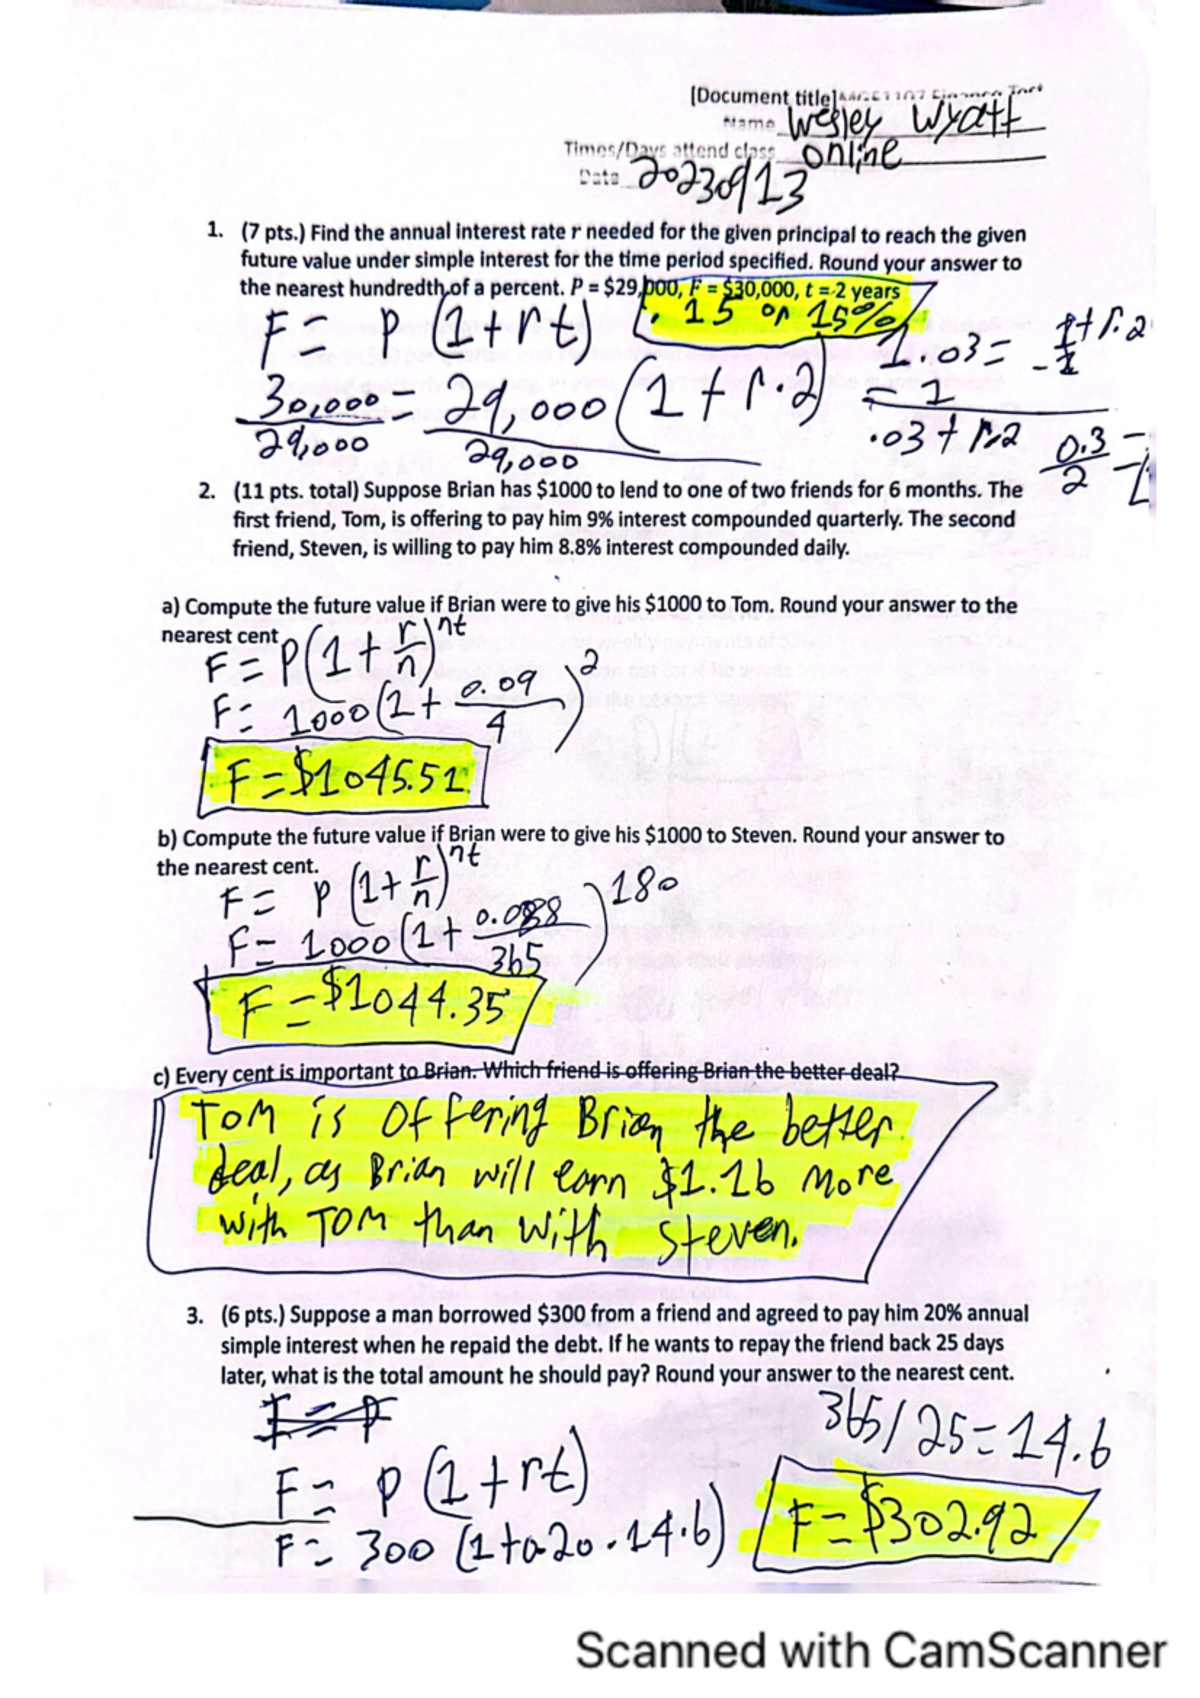 [Document title]
Name Wesley Wyatt
Times/Days attend class online
Date 20230913
1. (7 pts.) Find the annual interest rate r needed for the given principal to reach the given
future value under simple interest for the time period specified. Round your answer to
the nearest hundredth of a percent. P = $29,000, F = $30,000, t = 2 years
.15 or 15%
F = P (1+rt)
30,000 = 29,000 (1 + r.2)
29,000 29,000
1.03 = 1+r.2
- 1
= 1
.03 + r.2
0.3 =
2
2. (11 pts. total) Suppose Brian has $1000 to lend to one of two friends for 6 months. The
first friend, Tom, is offering to pay him 9% interest compounded quarterly. The second
friend, Steven, is willing to pay him 8.8% interest compounded daily.
a) Compute the future value if Brian were to give his $1000 to Tom. Round your answer to the
nearest cent
F = P(1 + r/n)^nt
F = 1000(1 + 0.09/4)^2
F = $1045.51
b) Compute the future value if Brian were to give his $1000 to Steven. Round your answer to
the nearest cent.
F = P (1 + r/n)^nt
F = 1000(1 + 0.088/365)^180
F = $1044.35
c) Every cent is important to Brian. Which friend is offering Brian the better deal?
TOM is offering Brian the better
deal, as Brian will earn $1.16 more
with TOM than with Steven.
3. (6 pts.) Suppose a man borrowed $300 from a friend and agreed to pay him 20% annual
simple interest when he repaid the debt. If he wants to repay the friend back 25 days
later, what is the total amount he should pay? Round your answer to the nearest cent.
365/25=14.6
F = P (1+rt)
F = 300 (1+0.20.14.6)
F = $302.92
Scanned with CamScanner